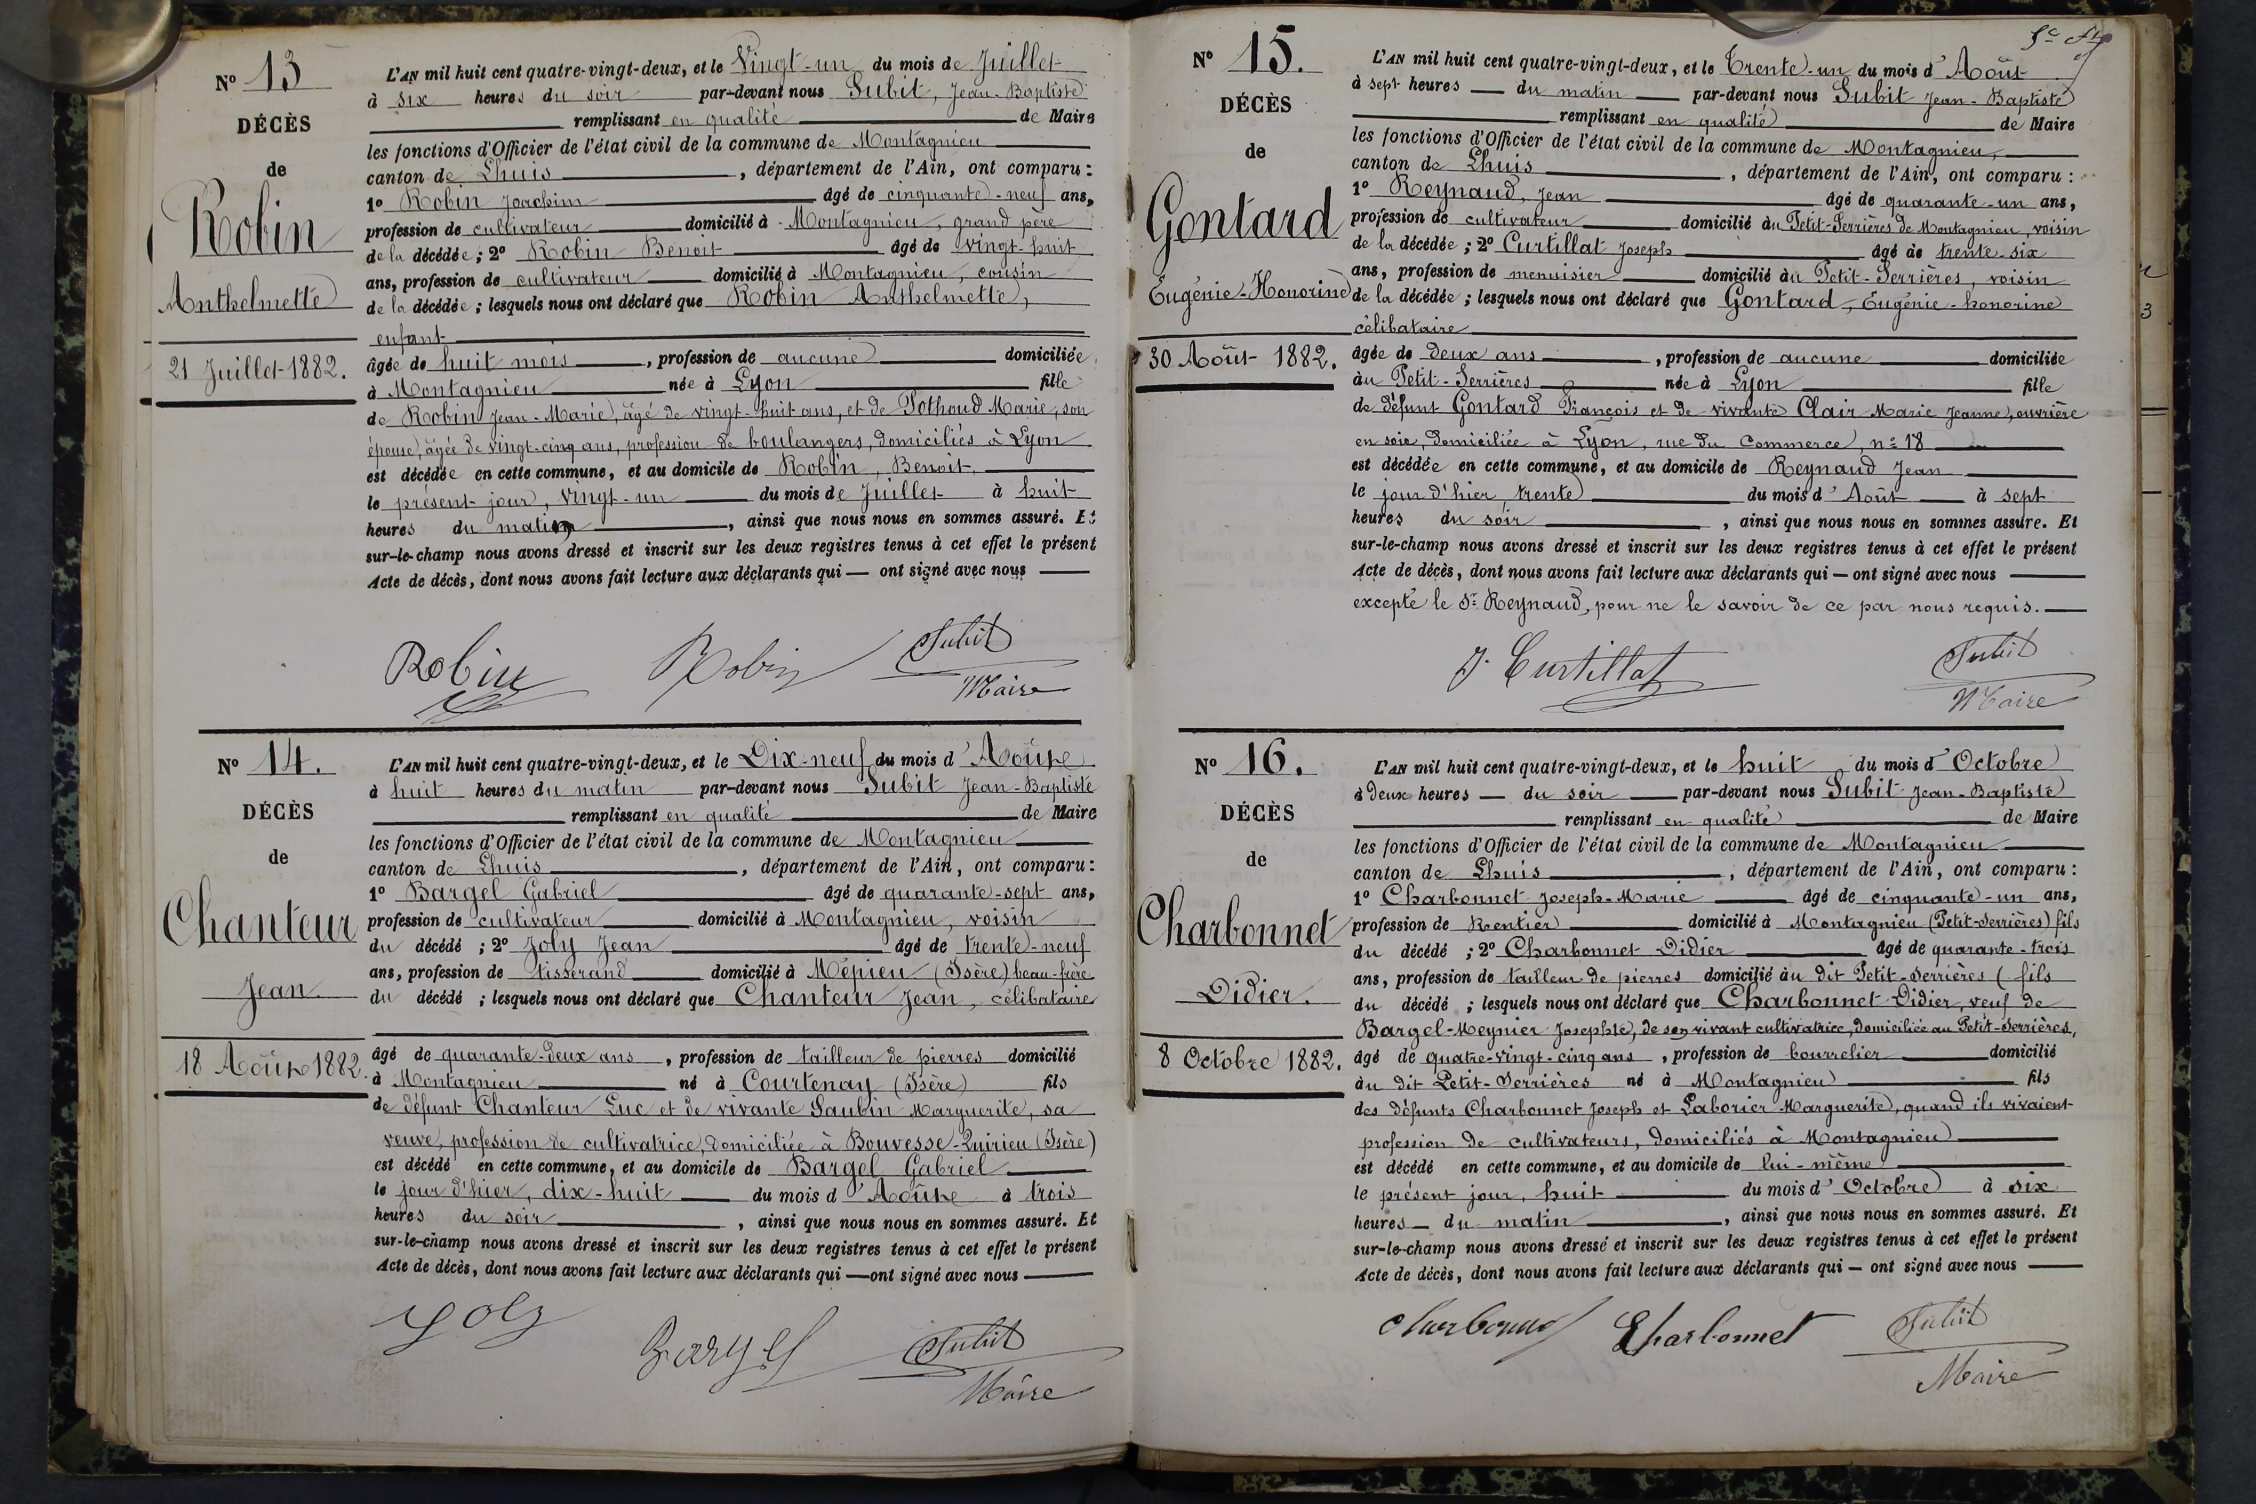 N° 13
DÉCÈS
de
Robin
Anthelmette
21 Juillet 1882.
L'AN mil huit cent quatre-vingt-deux, et le Vingt-un du mois de Juillet
à six heures du soir par-devant nous Subit, Jean-Baptiste
remplissant en qualité de Maire
les fonctions d'Officier de l'état civil de la commune de Montagnieu
canton de Lhuis, département de l'Ain, ont comparu:
1° Robin Joachim âgé de cinquante-neuf ans,
profession de cultivateur domicilié à Montagnieu, grand père
de la décédée; 2° Robin Benoit âgé de vingt-huit
ans, profession de cultivateur domicilié à Montagnieu, cousin
de la décédée; lesquels nous ont déclaré que Robin Anthelmette,
enfant
âgée de huit mois, profession de aucune domiciliée
à Montagnieu née à Lyon fille
de Robin Jean-Marie, âgé de vingt-huit ans, et de Pothoud Marie, son
épouse, âgée de vingt-cinq ans, profession de boulangers, domiciliés à Lyon
est décédée en cette commune, et au domicile de Robin, Benoit,
le présent jour, vingt-un du mois de Juillet à huit
heures du matin, ainsi que nous nous en sommes assuré. Et
sur-le-champ nous avons dressé et inscrit sur les deux registres tenus à cet effet le présent
Acte de décès, dont nous avons fait lecture aux déclarants qui — ont signé avec nous
Robin Robin Subit
Maire
N° 14.
DÉCÈS
de
Chanteur
Jean
18 Août 1882.
L'AN mil huit cent quatre-vingt-deux, et le Dix-neuf du mois d'Août
à huit heures du matin par-devant nous Subit Jean-Baptiste
remplissant en qualité de Maire
les fonctions d'Officier de l'état civil de la commune de Montagnieu
canton de Lhuis, département de l'Ain, ont comparu:
1° Bargel Gabriel âgé de quarante-sept ans,
profession de cultivateur domicilié à Montagnieu, voisin
du décédé; 2° Joly Jean âgé de trente-neuf
ans, profession de tisserand domicilié à Mépieu (Isère) beau-frère
du décédé; lesquels nous ont déclaré que Chanteur Jean, célibataire
âgé de quarante-deux ans, profession de tailleur de pierres domicilié
à Montagnieu né à Courtenay (Isère) fils
de défunt Chanteur Luc et de vivante Saubin Marguerite, sa
veuve, profession de cultivatrice, domiciliée à Bouvesse-Quirieu (Isère)
est décédé en cette commune, et au domicile de Bargel Gabriel
le jour d'hier, dix-huit du mois d'Août à trois
heures du soir, ainsi que nous nous en sommes assuré. Et
sur-le-champ nous avons dressé et inscrit sur les deux registres tenus à cet effet le présent
Acte de décès, dont nous avons fait lecture aux déclarants qui — ont signé avec nous
Joly Bargel Subit
Maire
N° 15.
DÉCÈS
de
Gontard
Eugénie-Honorine
30 Août 1882.
L'AN mil huit cent quatre-vingt-deux, et le Trente-un du mois d'Août
à sept heures — du matin — par-devant nous Subit Jean-Baptiste
remplissant en qualité de Maire
les fonctions d'Officier de l'état civil de la commune de Montagnieu,
canton de Lhuis, département de l'Ain, ont comparu:
1° Reynaud, Jean âgé de quarante-un ans,
profession de cultivateur domicilié au Petit-Serrières de Montagnieu, voisin
de la décédée; 2° Curtillat Joseph âgé de trente-six
ans, profession de menuisier domicilié au Petit-Serrières, voisin
de la décédée; lesquels nous ont déclaré que Gontard, Eugénie-honorine
célibataire
âgée de deux ans, profession de aucune domiciliée
au Petit-Serrières née à Lyon fille
de défunt Gontard François et de vivante Clair Marie Jeanne, ouvrière
en soie, domiciliée à Lyon, rue du Commerce, n° 18
est décédée en cette commune, et au domicile de Reynaud Jean
le jour d'hier, trente du mois d'Août à sept
heures du soir, ainsi que nous nous en sommes assuré. Et
sur-le-champ nous avons dressé et inscrit sur les deux registres tenus à cet effet le présent
Acte de décès, dont nous avons fait lecture aux déclarants qui — ont signé avec nous
excepté le Sr Reynaud, pour ne le savoir de ce par nous requis.
J. Curtillat Subit
Maire
N° 16.
DÉCÈS
de
Charbonnet
Didier.
8 Octobre 1882.
L'AN mil huit cent quatre-vingt-deux, et le huit du mois d'Octobre
à Deux heures — du soir — par-devant nous Subit Jean-Baptiste
remplissant en qualité de Maire
les fonctions d'Officier de l'état civil de la commune de Montagnieu
canton de Lhuis, département de l'Ain, ont comparu:
1° Charbonnet Joseph-Marie âgé de cinquante-un ans,
profession de Rentier domicilié à Montagnieu (Petit-Serrières) fils
du décédé; 2° Charbonnet Didier âgé de quarante-trois
ans, profession de tailleur de pierres domicilié au dit Petit-Serrières (fils
du décédé; lesquels nous ont déclaré que Charbonnet Didier, veuf de
Bargel-Meynier Josephte, de son vivant cultivatrice, domiciliée au Petit-Serrières,
âgé de quatre-vingt-cinq ans, profession de bourrelier domicilié
au dit Petit-Serrières né à Montagnieu fils
des défunts Charbonnet Joseph et Laborier Marguerite, quand ils vivaient
profession de cultivateurs, domiciliés à Montagnieu
est décédé en cette commune, et au domicile de lui-même
le présent jour, huit du mois d'Octobre à six
heures — du matin, ainsi que nous nous en sommes assuré. Et
sur-le-champ nous avons dressé et inscrit sur les deux registres tenus à cet effet le présent
Acte de décès, dont nous avons fait lecture aux déclarants qui — ont signé avec nous
Charbonnet Charbonnet Subit
Maire